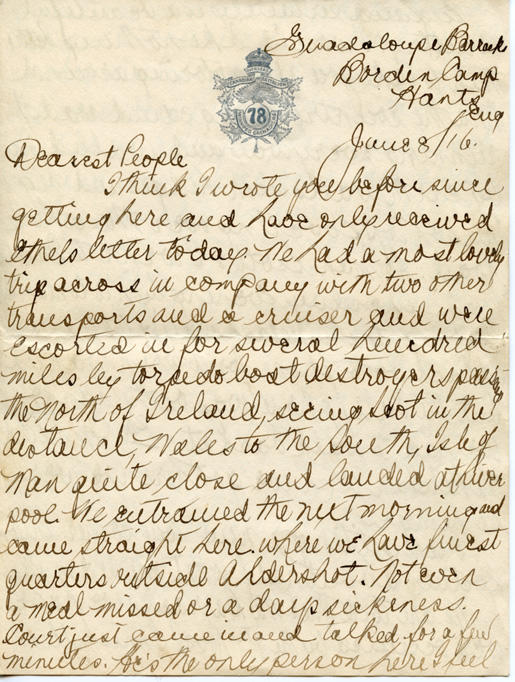 Guadaloupe Barracks
Borden Camp
Hants
Eng
June 8/16.
78
Dearest People
I think I wrote you before since
getting here and have only received
Ethels letter today. We had a most lovely
trip across in company with two other
transports and a cruiser and were
escorted in for several hundred
miles by torpedo boat destroyers passing
the North of Ireland, seeing Scot in the
distance, Wales to the South, Isle of
Man quite close and landed at Liver
pool. We entrained the next morning and
came straight here where we have finest
quarters outside Aldershot. Not even
a meal missed or a days sickness.
Court just came in and talked for a few
minutes. He's the only person here I feel